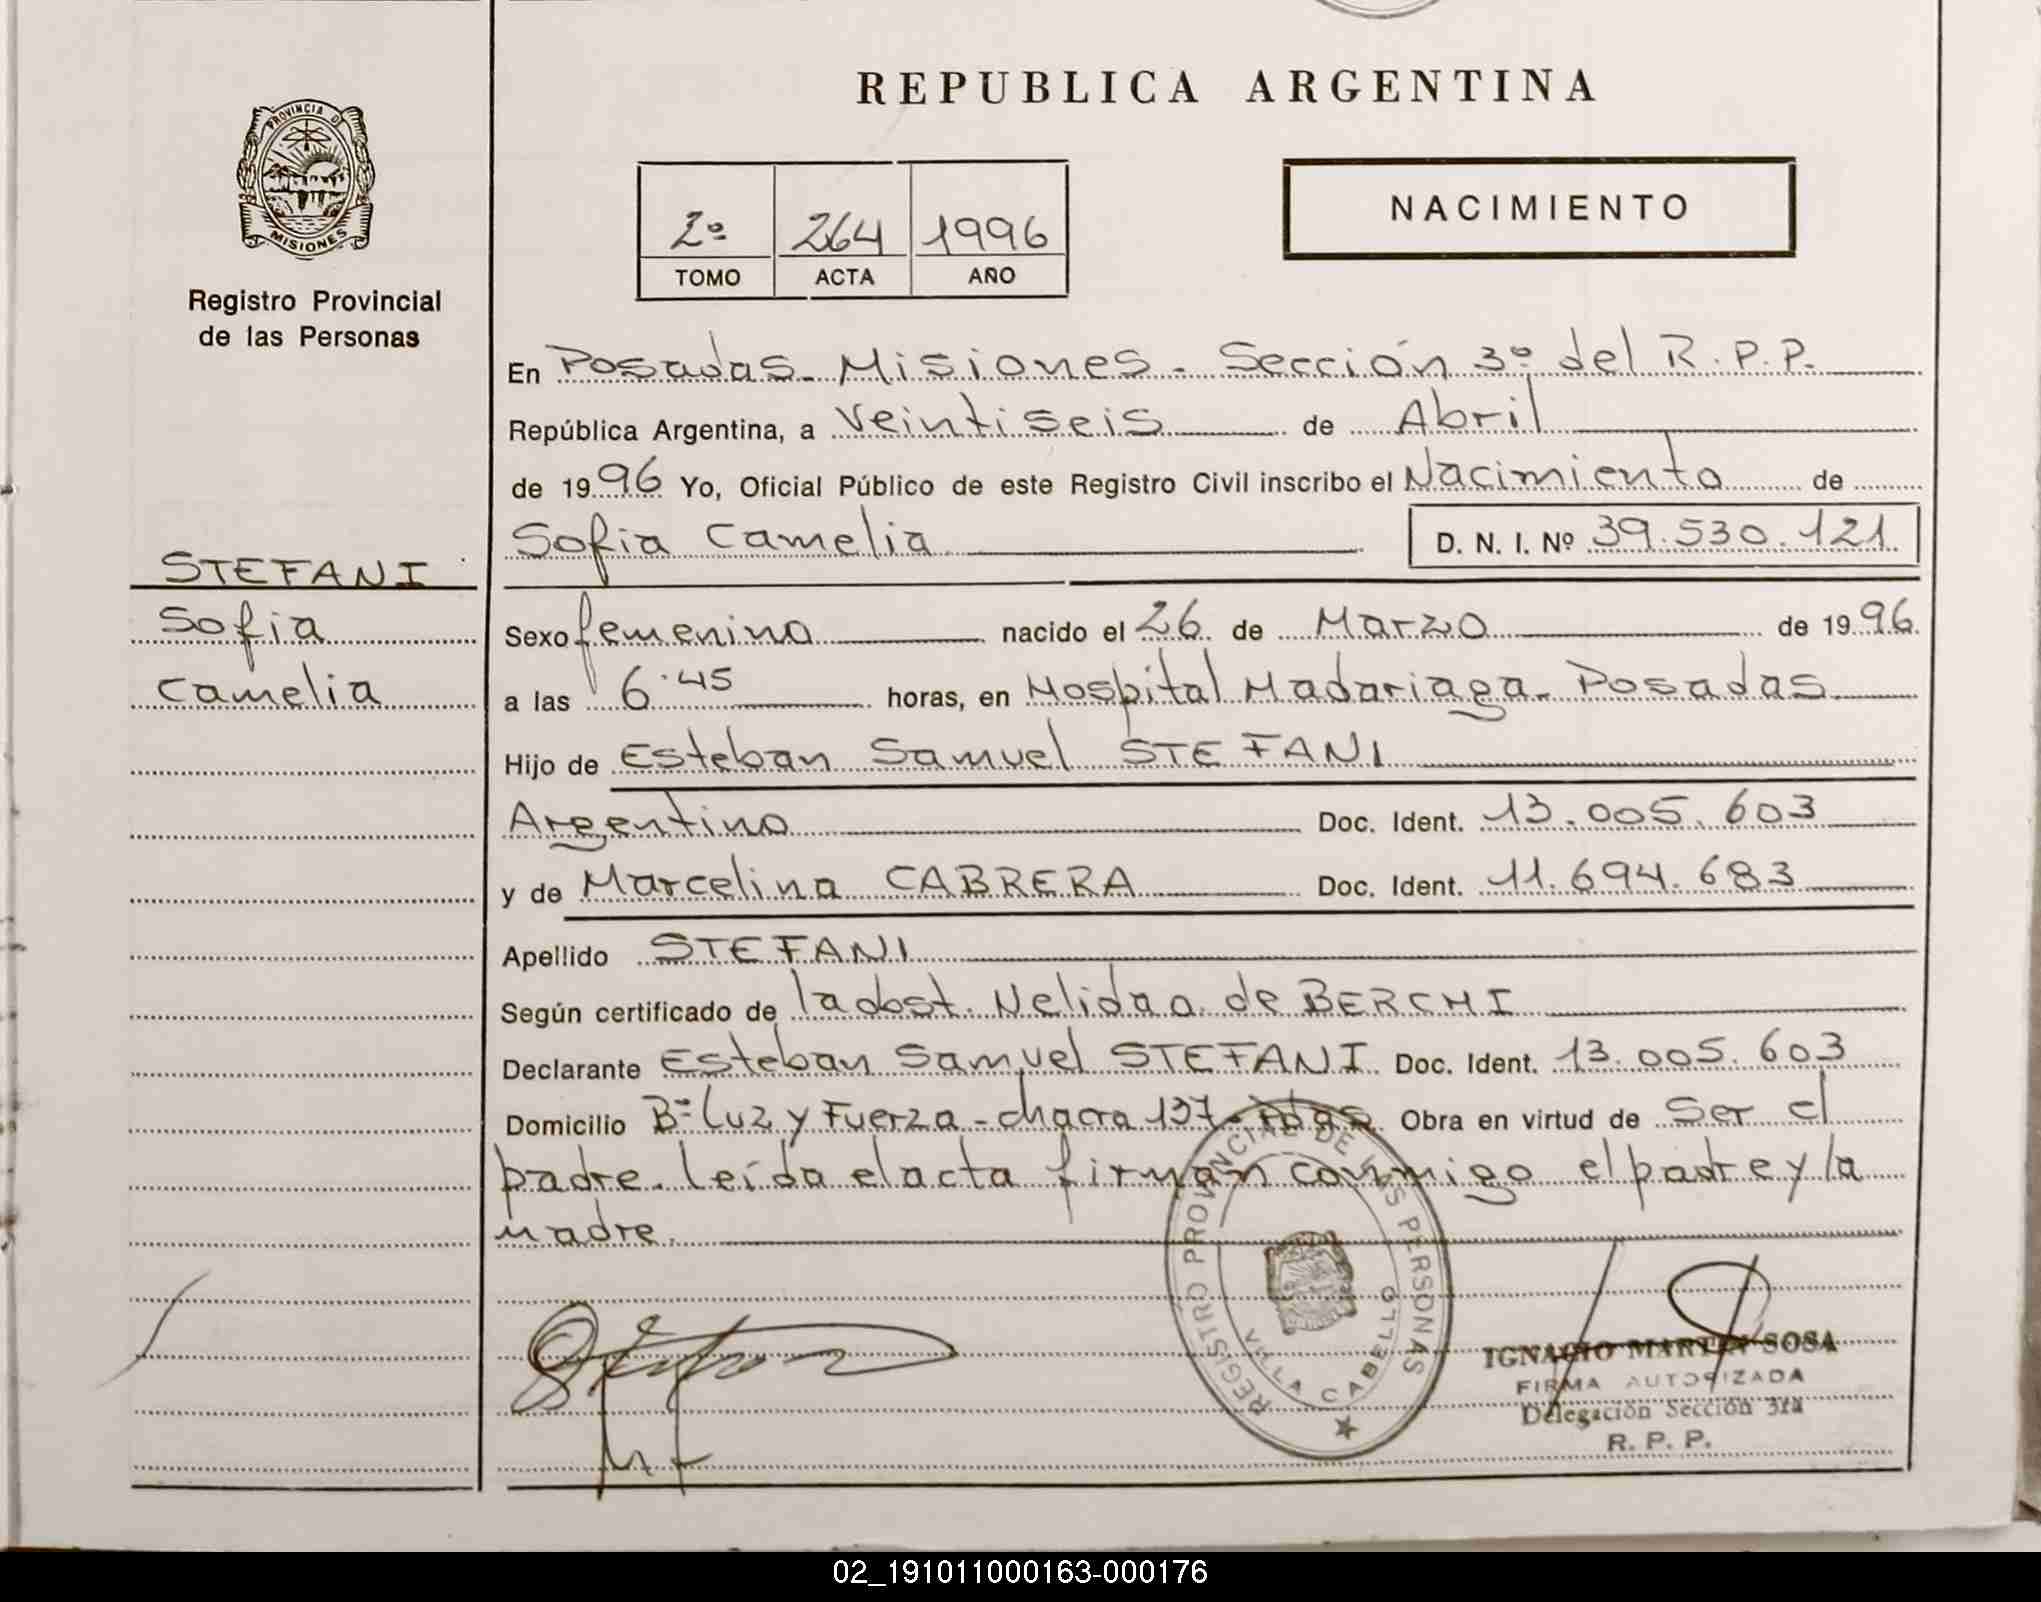 REPUBLICA ARGENTINA
PROVINCIA DE
MISIONES
Registro Provincial
de las Personas
2º 264 1996
TOMO ACTA AÑO
NACIMIENTO
En Posadas. Misiones. Sección 3º del R.P.P.
República Argentina, a Veintiseis de Abril
de 1996 Yo, Oficial Público de este Registro Civil inscribo el Nacimiento de
Sofia Camelia D. N. I. Nº 39.530.121
STEFANI
Sofia
Camelia
Sexo femenino nacido el 26 de Marzo de 1996
a las 6.45 horas, en Hospital Madariaga. Posadas
Hijo de Esteban Samuel STEFANI
Argentino Doc. Ident. 13.005.603
y de Marcelina CABRERA Doc. Ident. 11.694.683
Apellido STEFANI
Según certificado de la obst. Nelida O. de BERCHI
Declarante Esteban Samuel STEFANI Doc. Ident. 13.005.603
Domicilio Bº Luz y Fuerza - chacra 137 - Pdas Obra en virtud de Ser el
padre. Leída el acta firman conmigo el padre y la
madre.
REGISTRO PROVINCIAL DE LAS PERSONAS
VILLA CABELLO
IGNACIO MARTIN SOSA
FIRMA AUTORIZADA
Delegación Sección 3ra
R. P. P.
02_191011000163-000176